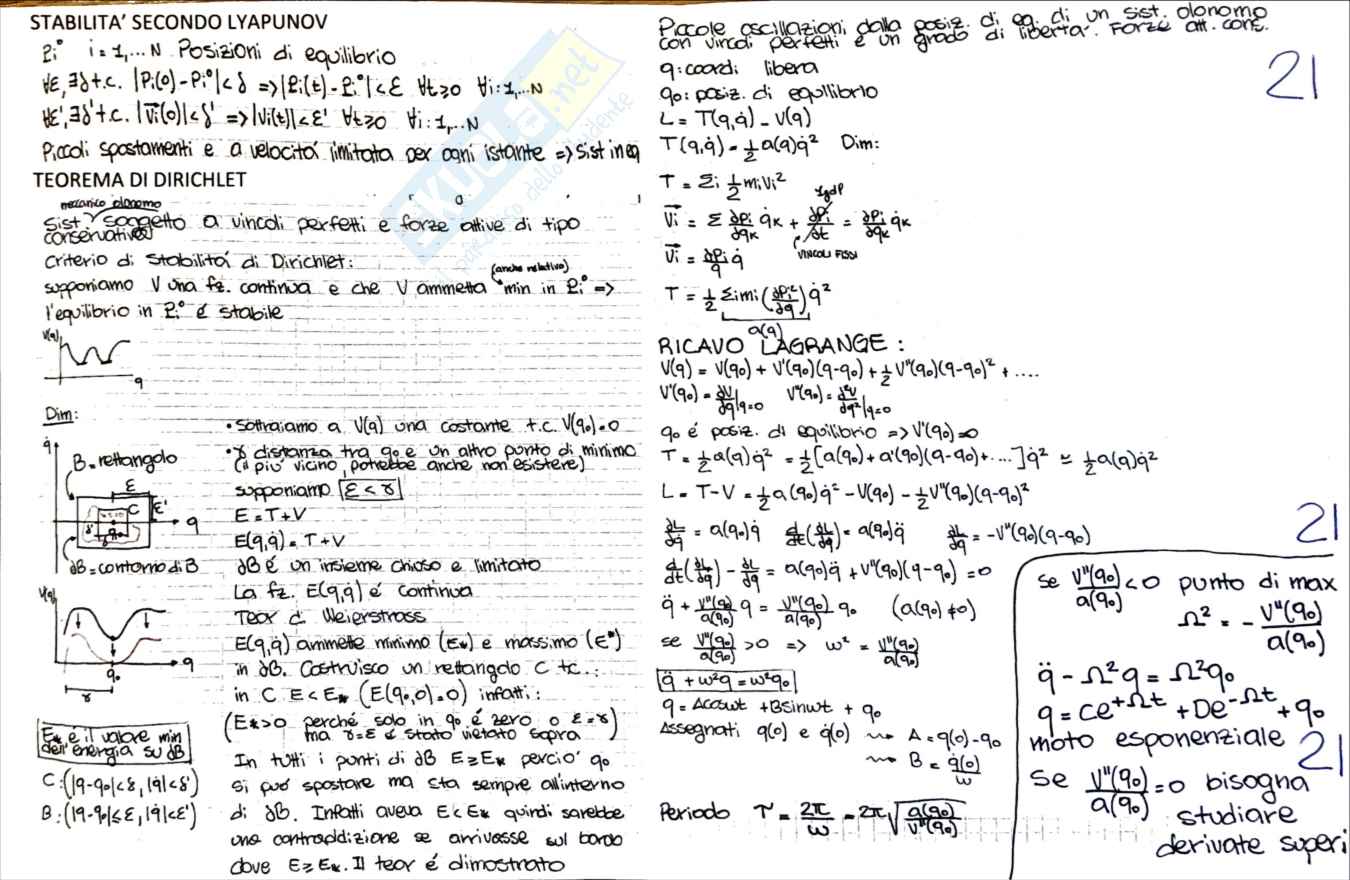 STABILITA' SECONDO LYAPUNOV
Pi° i=1,...N Posizioni di equilibrio
∀ε, ∃δ t.c. |Pi(0)-Pi°|<δ => |Pi(t)-Pi°|<ε ∀t≥0 ∀i:1,...N
∀ε', ∃δ' t.c. |Vi(0)|<δ' => |Vi(t)|<ε' ∀t≥0 ∀i:1,...N
Piccoli spostamenti e a velocitá limitata per ogni istante => sist in eq
TEOREMA DI DIRICHLET
meccanico olonomo
Sist soggetto a vincoli perfetti e forze attive di tipo
conservativo
Criterio di Stabilitá di Dirichlet:
(anche relativo)
supponiamo V una fz. continua e che V ammetta min in Pi° =>
l'equilibrio in Pi° é stabile
V(q)
q
Dim:
• Sottraiamo a V(q) una costante t.c. V(q₀)=0
• γ distanza tra q₀ e un altro punto di minimo
(il piu' vicino, potrebbe anche non esistere)
supponiamo ε < γ
E = T+V
E(q,q̇) = T+V
∂B é un insieme chiuso e limitato
La fz. E(q,q̇) é continua
Teor di Weierstrass
E(q,q̇) ammette minimo (E*) e massimo (E*)
in ∂B. Costruisco un rettangolo C t.c.:
in C E<E* (E(q₀,0)=0) infatti:
(E*>0 perché solo in q₀ é zero o ε=γ)
ma γ=ε é stato vietato sopra
In tutti i punti di ∂B E≥E* perció' q₀
si puó spostare ma sta sempre all'interno
di ∂B. Infatti aveva E<E* quindi sarebbe
una contraddizione se arrivasse sul bordo
dove E≥E*. Il teor é dimostrato
q̇
B=rettangolo
ε
C
ε'
δ'
q₀
q
∂B=contorno di B
V(q)
q₀
q
γ
E* é il valore min
dell'energia su ∂B
C:(|q-q₀|<δ, |q̇|<δ')
B:(|q-q₀|≤ε, |q̇|<ε')
Piccole oscillazioni dalla posiz. di eq. di un sist. olonomo
con vincoli perfetti e un grado di liberta'. Forze att. cons.
21
q: coord. libera
q₀: posiz. di equilibrio
L = T(q,q̇) - V(q)
T(q,q̇) = ½ a(q) q̇² Dim:
T = Σi ½ miVi²
Vi = Σ ∂Pi/∂qk q̇k + ∂Pi/∂t = ∂Pi/∂qk q̇k
VINCOLI FISSI
Vi = ∂Pi/q q̇
T = ½ Σimi (∂Pi²/∂q) q̇²
a(q)
RICAVO LAGRANGE:
V(q) = V(q₀) + V'(q₀)(q-q₀) + ½ V''(q₀)(q-q₀)² + ....
V'(q₀) = ∂V/∂q|q=0 V''(q₀) = ∂²V/∂q²|q=0
q₀ é posiz. di equilibrio => V'(q₀)=0
T = ½ a(q) q̇² = ½ [a(q₀) + a'(q₀)(q-q₀)+....] q̇² ≃ ½ a(q) q̇²
L = T-V = ½ a(q₀) q̇² - V(q₀) - ½ V''(q₀)(q-q₀)²
∂L/∂q̇ = a(q₀) q̇ d/dt(∂L/∂q̇) = a(q₀) q̈ ∂L/∂q = -V''(q₀)(q-q₀)
21
d/dt(∂L/∂q̇) - ∂L/∂q = a(q₀) q̈ + V''(q₀)(q-q₀) = 0
q̈ + V''(q₀)/a(q₀) q = V''(q₀)/a(q₀) q₀ (a(q₀) ≠0)
se V''(q₀)/a(q₀) >0 => ω² = V''(q₀)/a(q₀)
q̈ + ω²q = ω²q₀
q = Acosωt + Bsinωt + q₀
Assegnati q(0) e q̇(0) ⇝ A = q(0)-q₀
⇝ B = q̇(0)/ω
Periodo T = 2π/ω = 2π√(a(q₀)/V''(q₀))
se V''(q₀)/a(q₀) <0 punto di max
Ω² = - V''(q₀)/a(q₀)
q̈ - Ω²q = Ω²q₀
q = Ce^+Ωt + De^-Ωt + q₀
moto esponenziale
21
Se V''(q₀)/a(q₀) =0 bisogna
studiare
derivate superi